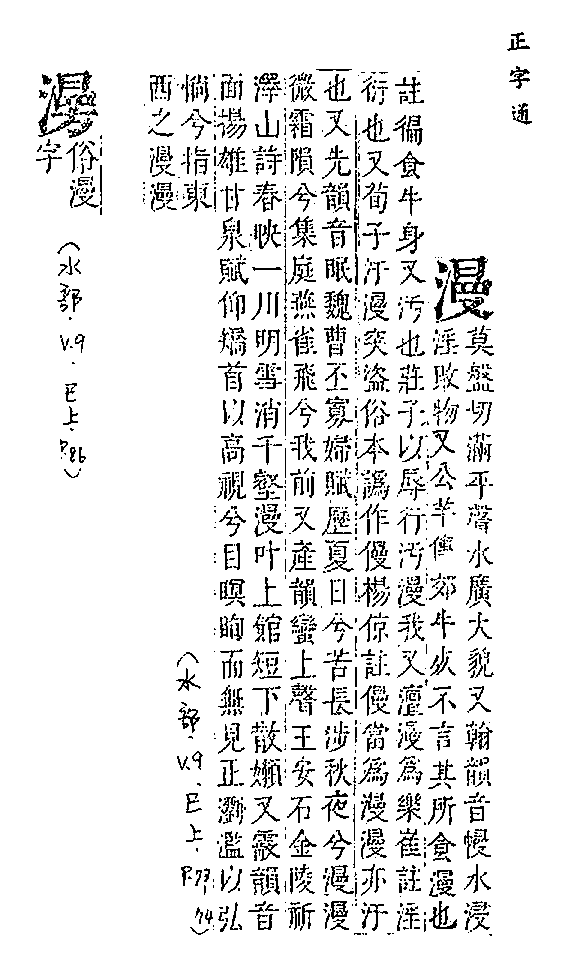 正字通
漫
莫盤切滿平聲水廣大貌又翰韻音慢水浸
淫敗物又公羊傳郊牛𣦸不言其所食漫也
註徧食牛身又汚也莊子以辱行汚漫我又澶漫爲樂崔註淫
衍也又荀子汙漫突盜俗本譌作僈楊倞註僈當爲漫漫亦汙
也又先韻音眠魏曹丕寡婦賦歷夏日兮苦長涉秋夜兮漫漫
微霜隕兮集庭燕雀飛兮我前又產韻蠻上聲王安石金陵祈
澤山詩春映一川明雪消千壑漫叶上館短下散嬾又霰韻音
面揚雄甘泉賦仰矯首以高視兮目瞑眴而無見正瀏濫以弘
惝兮指東
西之漫漫
(水部.V.9.巳上.P.73,74)
俗漫
字
(水部.V.9.巳上.P.86)